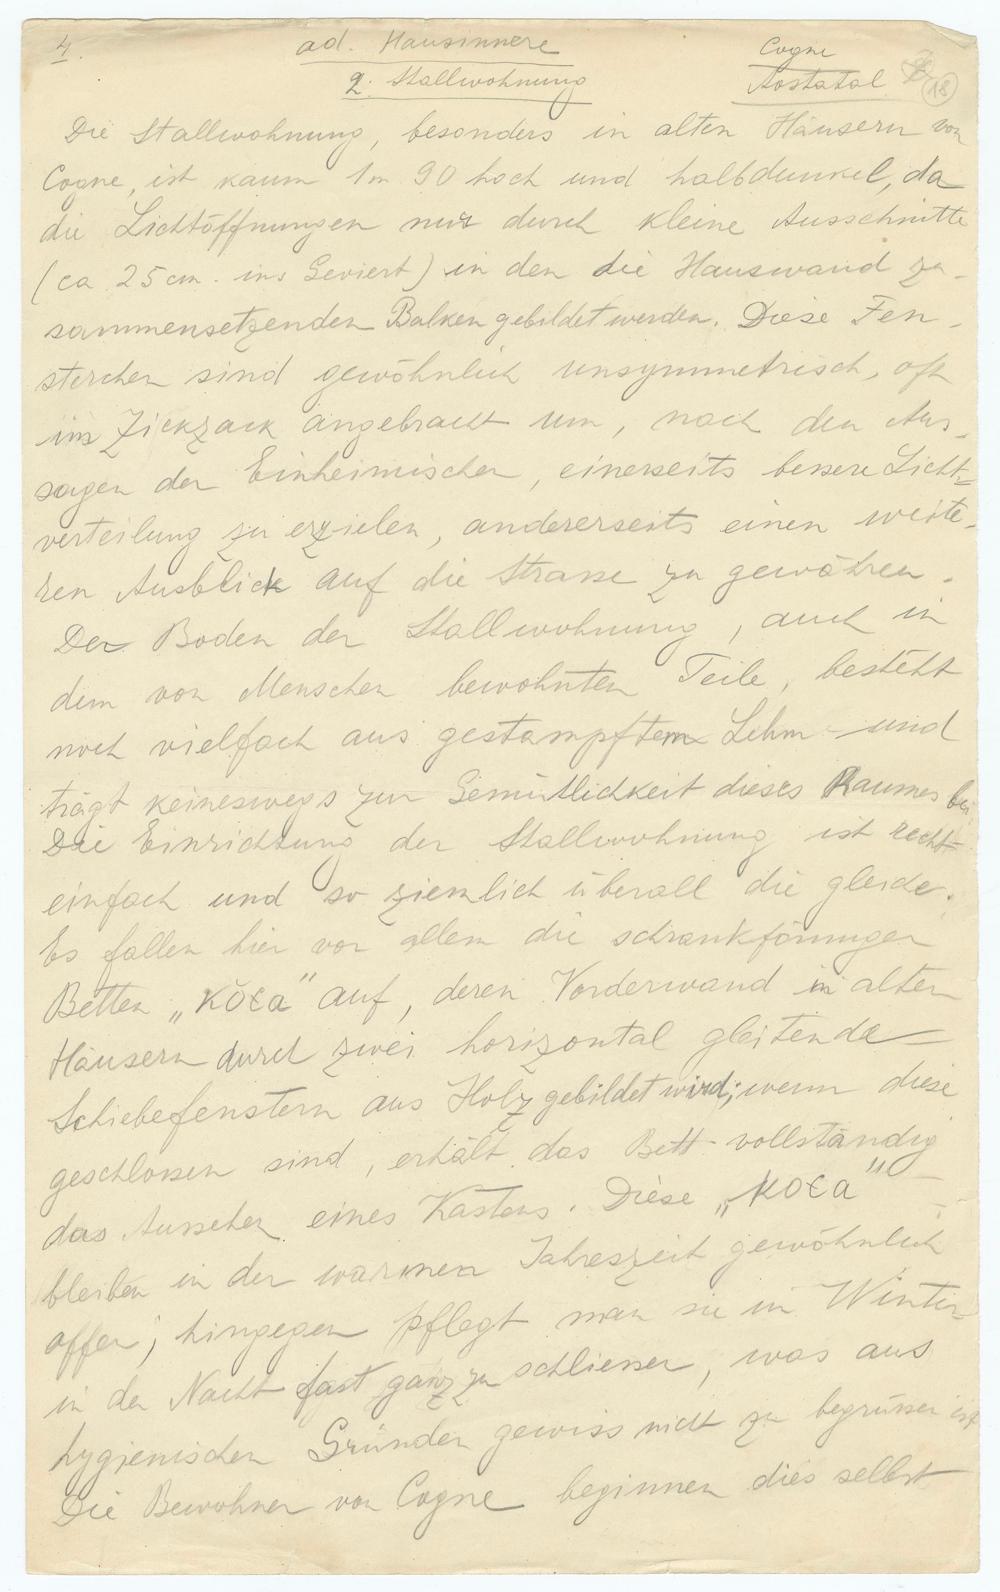 4. ad. Hausinnere Cogne
2. Stallwohnung Aostatal 18
Die Stallwohnung, besonders in alten Häusern von
Cogne, ist kaum 1m 90 hoch und halbdunkel, da
die Lichtöffnungen nur durch kleine Ausschnitte
(ca 25 cm. ins Geviert) in den die Hauswand zu-
sammensetzenden Balken gebildet werden. Diese Fen-
sterchen sind gewöhnlich unsymmetrisch, oft
im Zickzack angebracht um, nach den Aus-
sagen der Einheimischen, einerseits bessere Licht-
verteilung zu erzielen, andererseits einen weite-
ren Ausblick auf die Strasse zu gewähren.
Der Boden der Stallwohnung, auch in
dem von Menschen bewohnten Teile, besteht
noch vielfach aus gestampftem Lehm und
trägt keineswegs zur Gemütlichkeit dieses Raumes bei.
Die Einrichtung der Stallwohnung ist recht
einfach und so ziemlich überall die gleiche.
Es fallen hier vor allem die schrankförmigen
Betten „kŏča" auf, deren Vorderwand in alten
Häusern durch zwei horizontal gleitende
Schiebefenstern aus Holz gebildet wird; wenn diese
geschlossen sind, erhält das Bett vollständig
das Aussehen eines Kastens. Diese „koča"
bleiben in der warmen Jahreszeit gewöhnlich
offen; hingegen pflegt man sie im Winter
in der Nacht fast ganz zu schliessen, was aus
hygienischen Gründen gewiss nicht zu begrüssen ist.
Die Bewohner von Cogne beginnen dies selbst